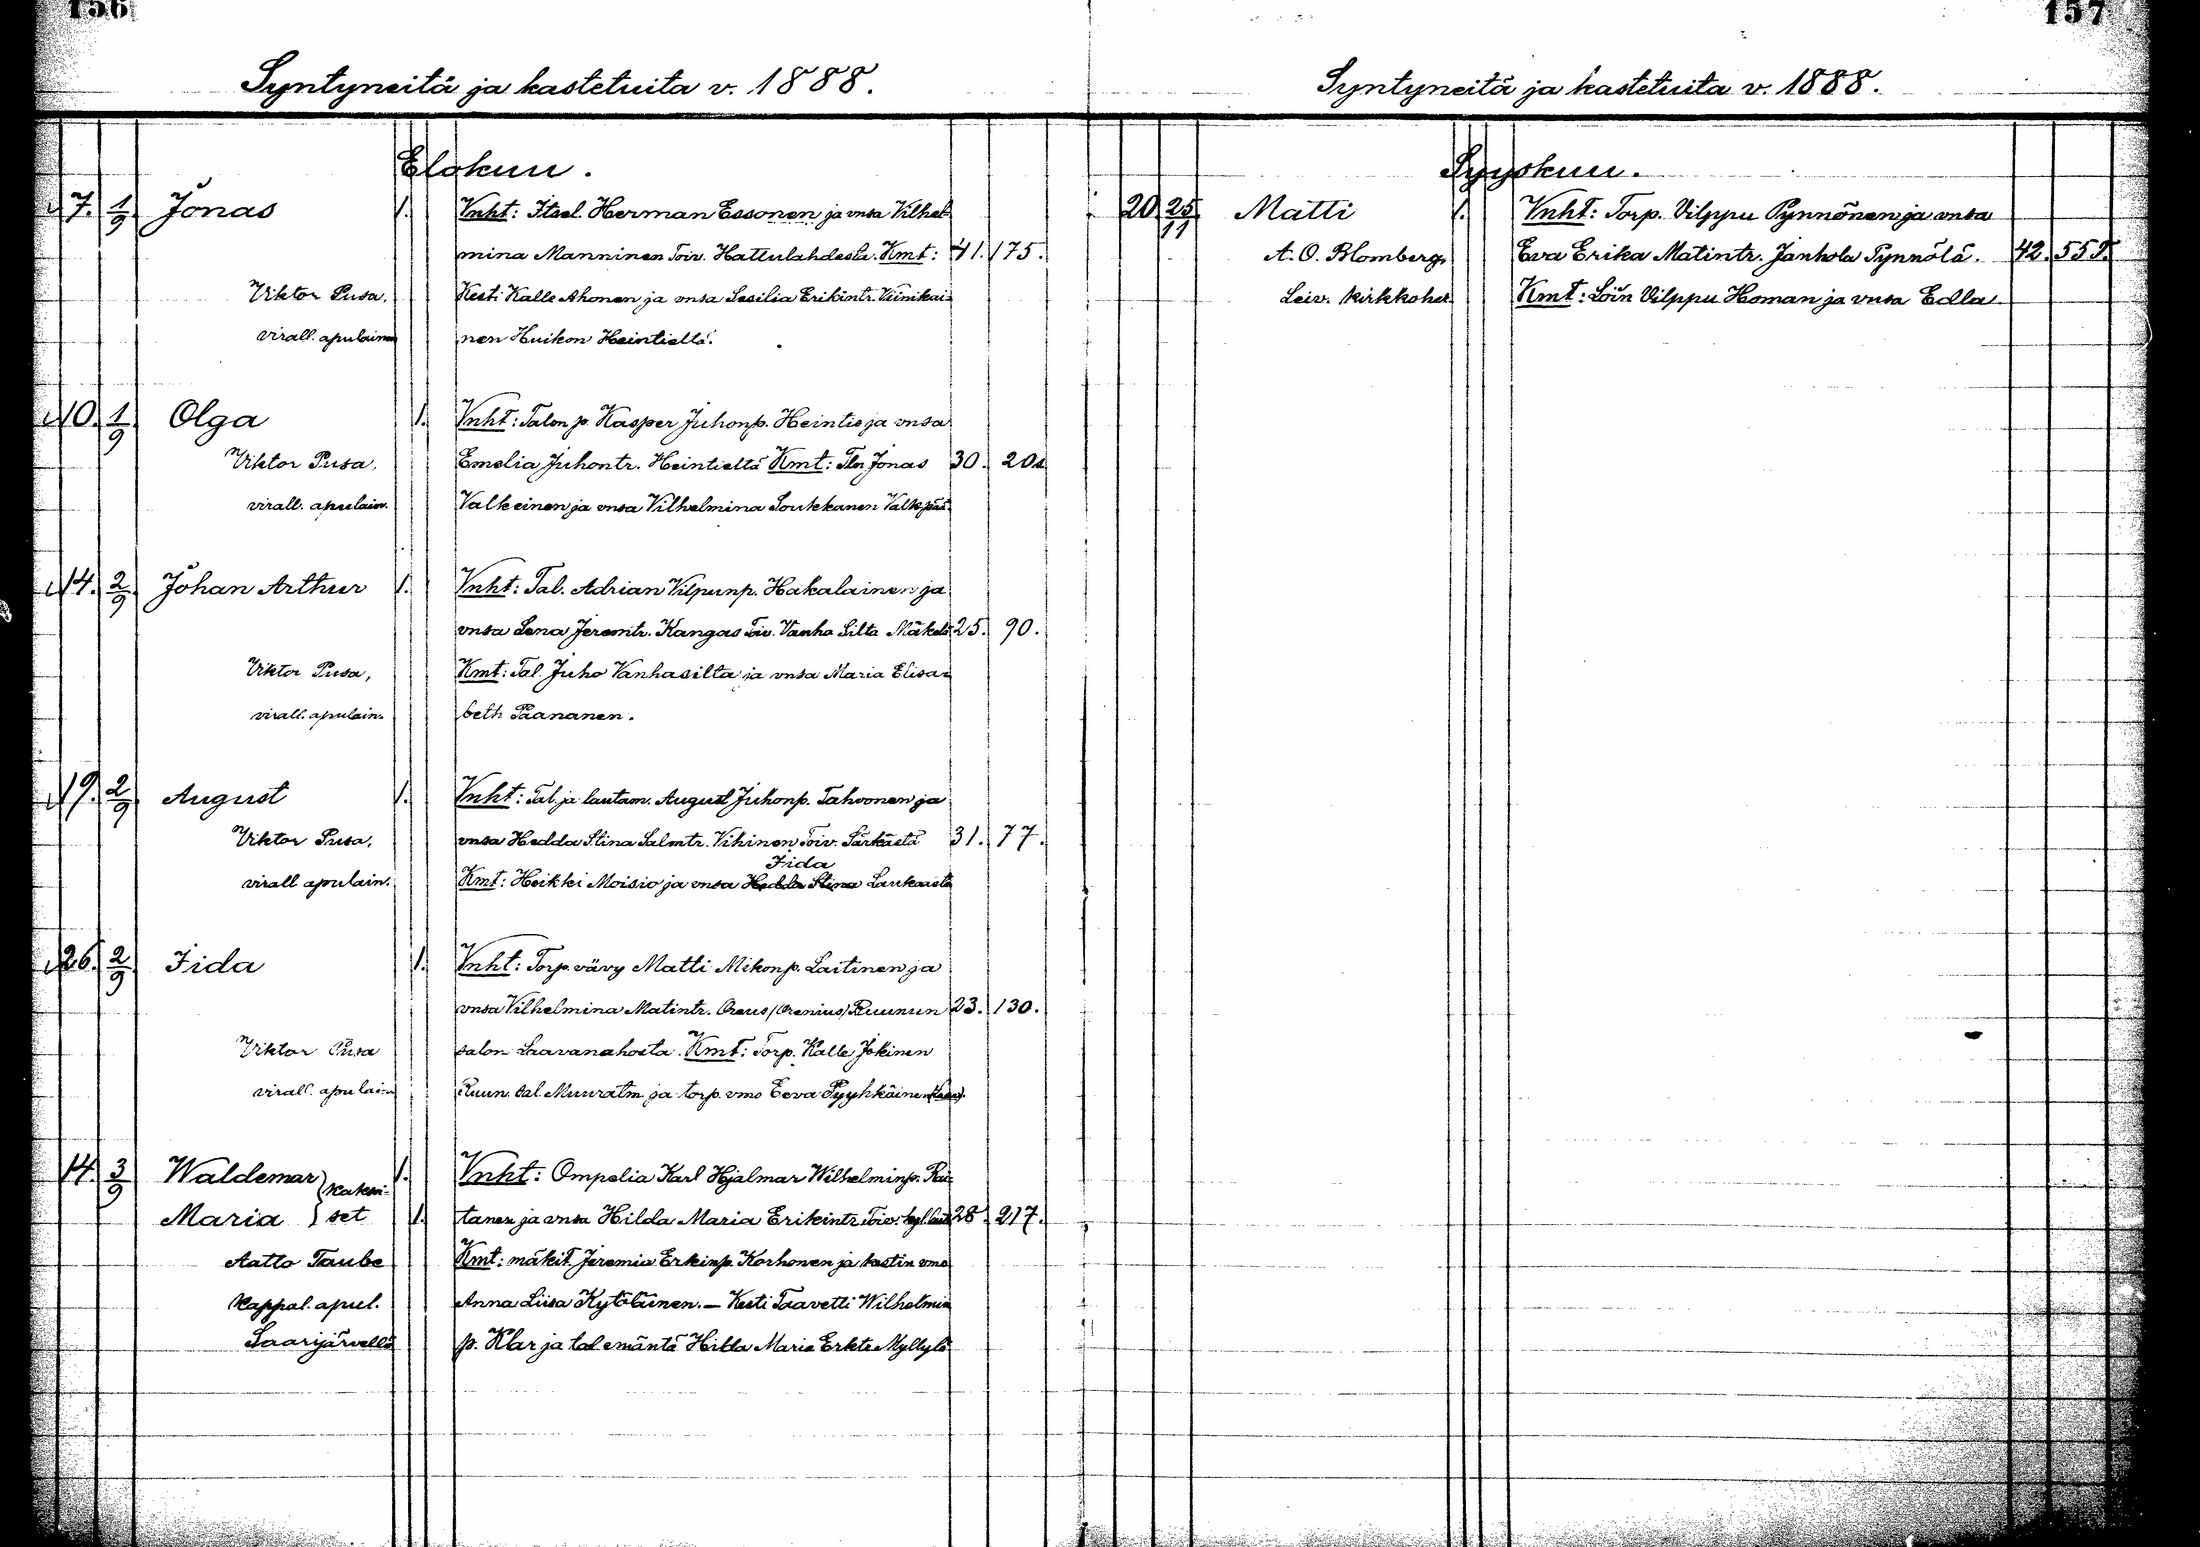 156
Syntyneitä ja kastetuita v. 1888.
Elokuu.
7. 1/9 Jonas 1. Vnht: Itsel. Herman Essonen ja vnsa Vilhel-
mina Manninen Toiv. Hattulahdesta. Kmt: 41. 175.
Viktor Pusa, Kesti Kalle Ahonen ja vnsa Sesilia Erikintr. Viinikai-
virall. apulainen nen Huikon Heintieltä.
10. 1/9 Olga 1. Vnht: Talon p. Kasper Juhonp. Heintie ja vnsa
Viktor Pusa, Emelia Juhontr. Heintieltä Kmt: Tln Jonas 30. 204
virall. apulain. Valkeinen ja vnsa Vilhelmina Soukkanen
14. 2/9 Johan Arthur 1. Vnht: Tal. Adrian Vilpunp. Hakalainen ja
vnsa Lena Jeremtr. Kangas Toiv. Vanha Silta Mäkelä 25. 90.
Viktor Pusa, Kmt: Tal. Juho Vanhasilta ja vnsa Maria Elisa-
virall. apulain. beth Paananen.
19. 2/9 August 1. Vnht: Tal. ja lautam. August Juhonp. Tahvonen ja
Viktor Pusa, vnsa Hedda Stina Salmtr. Vihinen Toiv. Särkästä 31. 77.
Fida
virall apulain. Kmt: Heikki Moisio ja vnsa Hedda Stina Laukaasta
26. 2/9 Fida 1. Vnht: Torp. vävy Matti Mikonp. Laitinen ja
vnsa Vilhelmina Matintr. Oreus (Orenius) Ruunun 23. 130.
Viktor Pusa salon Saavanahosta. Kmt: Torp. Kalle Jokinen
virall. apulain Ruun. sal. Muuratm ja torp. vmo Eeva Pyyhkäinen
14. 3/9 Waldemar } kaksi- 1. Vnht: Ompelia Karl Hjalmar Wilhelminp. Rai-
Maria } set 1. tanen ja vnsa Hilda Maria Erikintr. Toiv. 28. 217.
Aatto Taube Kmt: mäkit. Jeremia Erkinp. Korhonen ja kestin vmo
Kappal. apul. Anna Liisa Kytöläinen. — Kesti Taavetti Wilhelmin
Saarijärvellä p. Klar ja tal. emäntä Hilda Maria Erktr. Myllylä
157
Syntyneitä ja kastetuita v. 1888.
Syyskuu.
20. 25/11 Matti 1. Vnht: Torp. Vilppu Pynnönen ja vnsa
A. O. Blomberg, Eva Erika Matintr. Janhola Pynnölä. 42. 555.
Leiv. kirkkoher. Kmt: Loin Vilppu Homan ja vnsa Edla